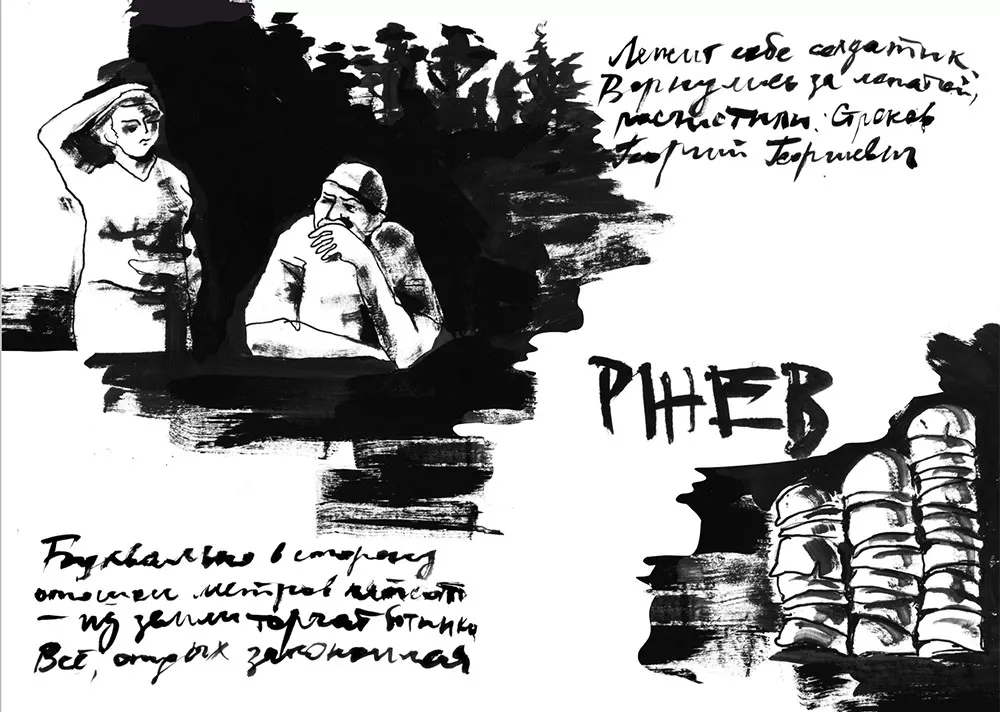 Лежит себе солдатик
Вернулись за лопатой,
расчистили. Строков
Георгий Георгиевич
РЖЕВ
Буквально в сторону
отошли метров пятьсот
– из земли торчат ботинки
Всё, отдых закончился